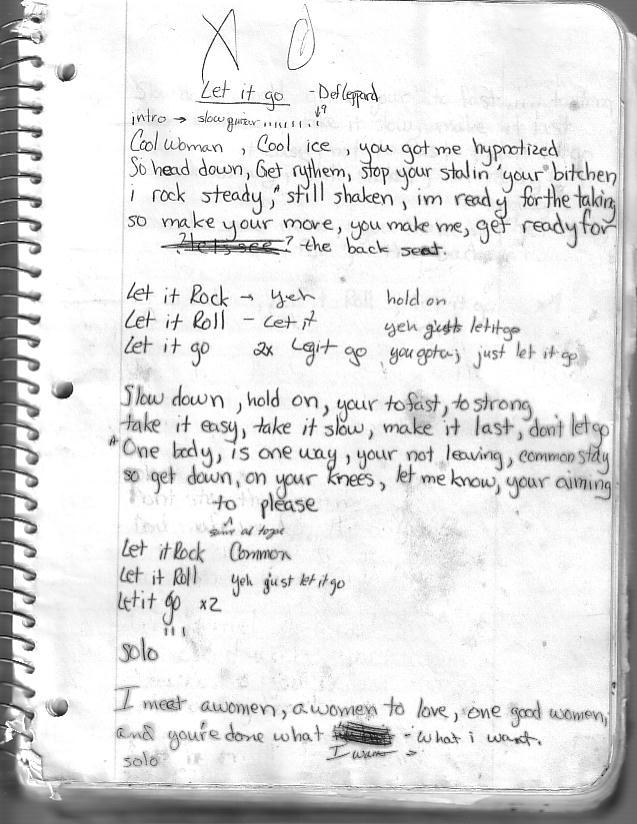 Let it go - Def Leppard
intro → slow guitar ........ ↓9
Cool woman, Cool ice, you got me hypnotized
So head down, Get rythem, stop your stalin "your" bitchen
i rock steady, still shaken, im ready for the taking
so make your move, you make me, get ready for
? let's see ? the back seat.
Let it Rock → yeh hold on
Let it Roll - Let it yeh just let it go
Let it go 2x Legit go you gotta; just let it go
Slow down, hold on, your to fast, to strong
take it easy, take it slow, make it last, don't let go
One body, is one way, your not leaving, common stay
so get down, on your knees, let me know, your aiming
to please
same as top
Let it Rock Common
Let it Roll yeh just let it go
Let it go x2
solo
I meet a women, a women to love, one good women,
and you're done what - what i want.
solo I want